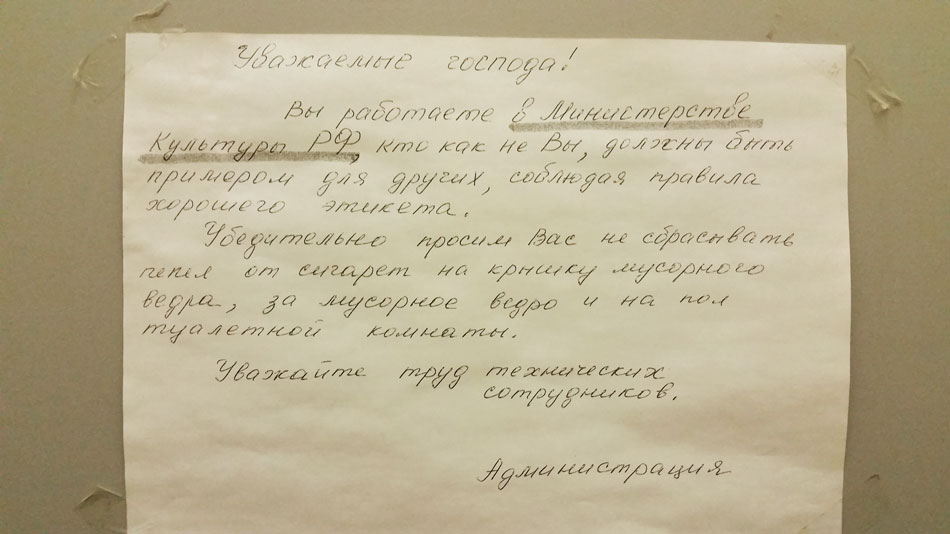 Уважаемые господа!
Вы работаете в Министерстве
Культуры РФ, кто как не Вы, должны быть
примером для других, соблюдая правила
хорошего этикета.
Убедительно просим Вас не сбрасывать
пепел от сигарет на крышку мусорного
ведра, за мусорное ведро и на пол
туалетной комнаты.
Уважайте труд технических
сотрудников.
Администрация